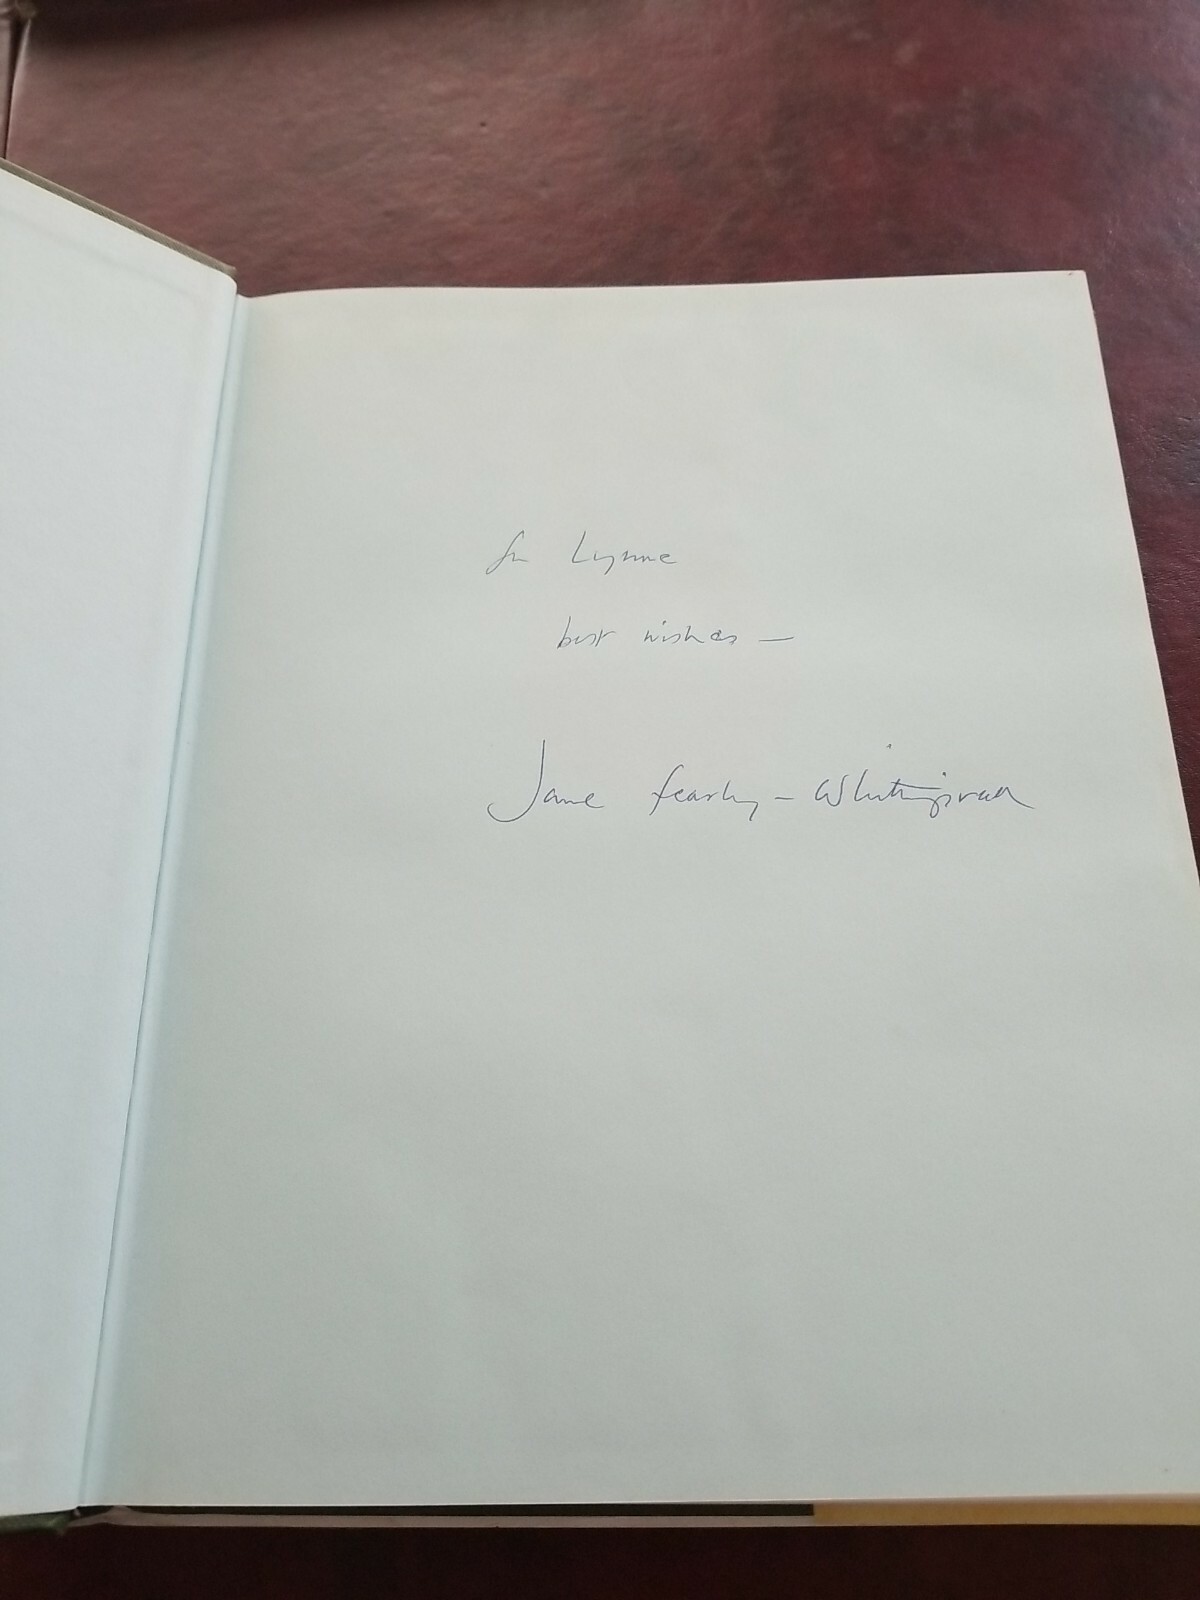 for Lynne
best wishes —
Jane Fearnley-Whittingstall